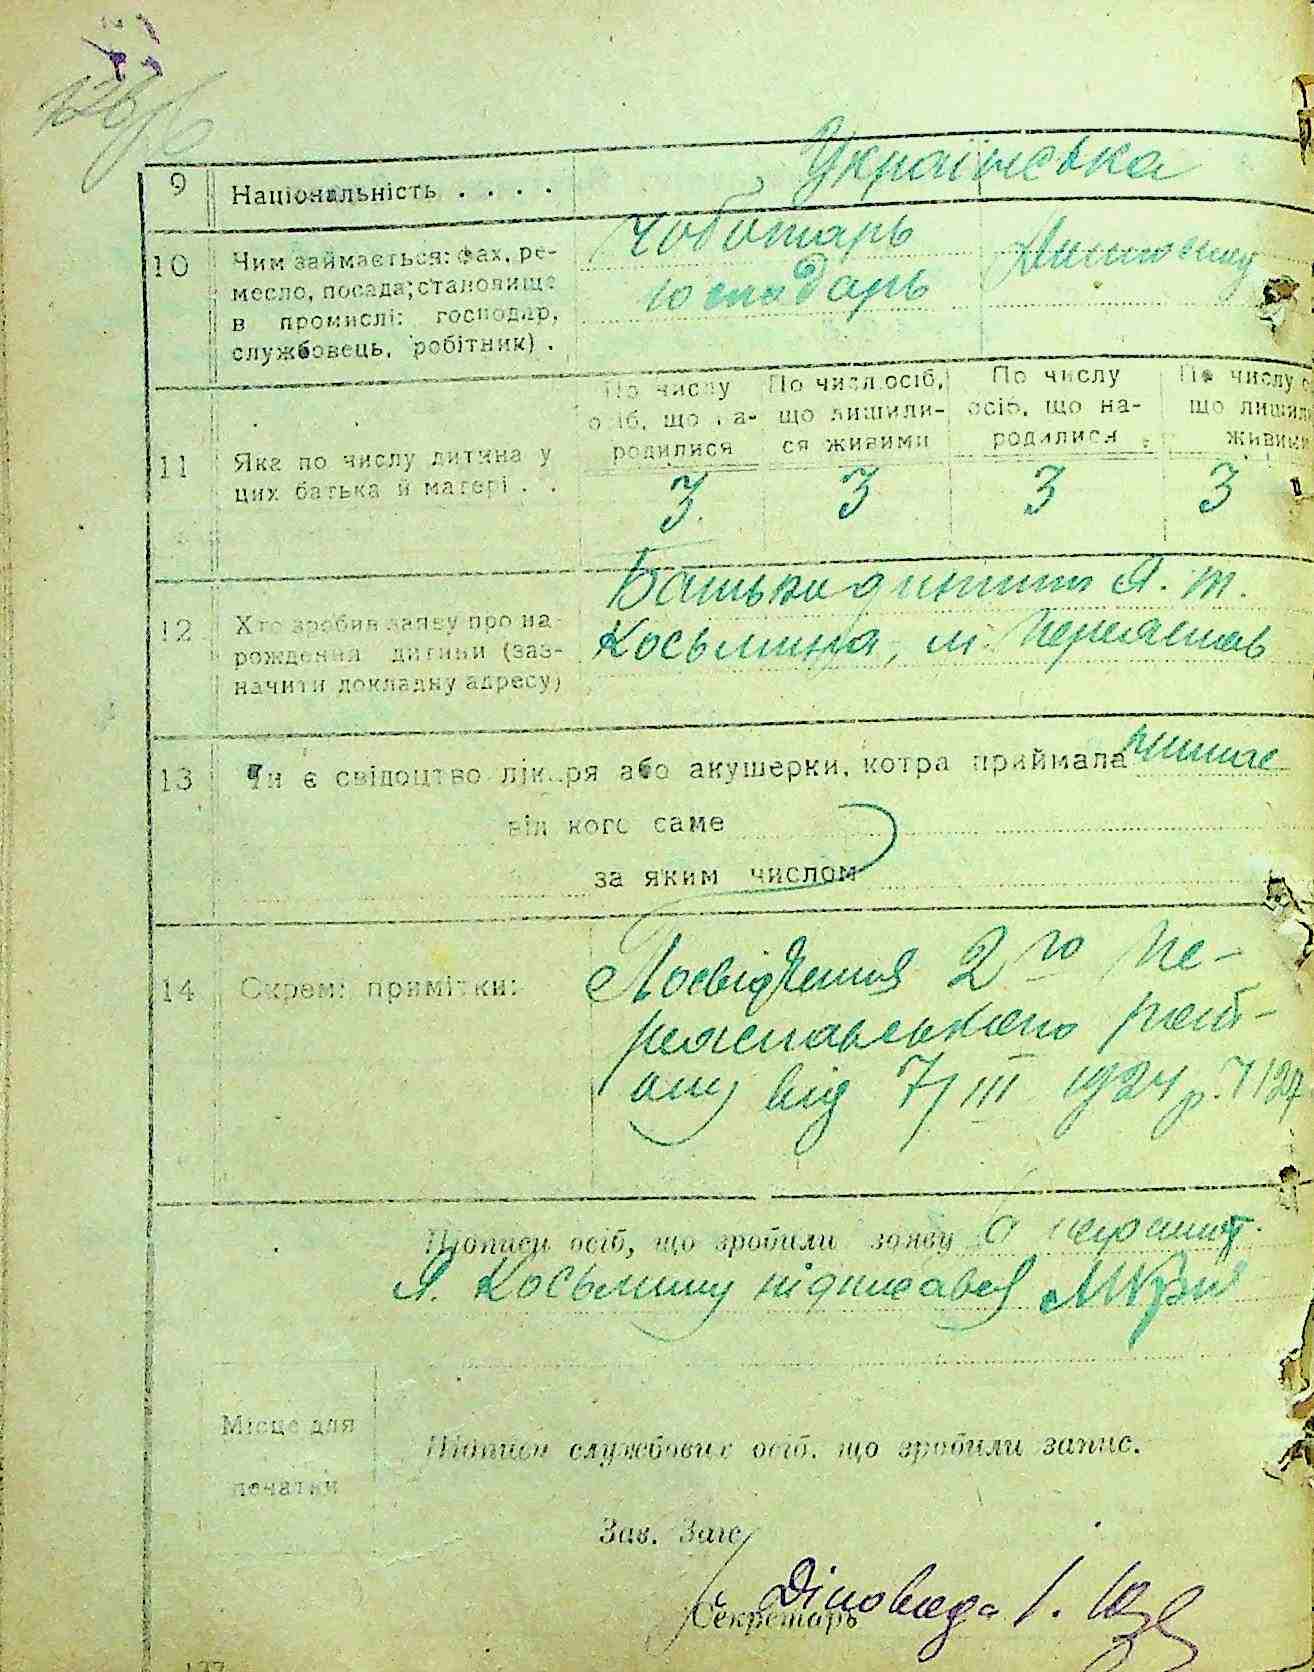 9 Національність . . . . Українська
10 Чим займається: фах, ре-
месло, посада; становище
в промислі: господар,
службовець, робітник) .
Чоботарь
господарь
11 Яка по числу дитина у
цих батька й матері . .
По числу осіб, що на-родилися
По числ. осіб, що лишили-ся живими
По числу осіб, що на-родилися
По числу що лишили живими
3 3 3 3
12 Хто зробив заяву про на-
рождення дитини (заз-
начити докладну адресу)
Батько дитини Я. Т.
Косьмина, м. Переяслав
13 Чи є свідоцтво лікаря або акушерки, котра приймала немає
від кого саме
за яким числом
14 Окремі примітки:
Посвідчення 2го Пе-
реяславського рай-
ону від 7/III 1924 р.
Підписи осіб, що зробили заяву
Я. Косьмину підписався
Місце для
печатки
Підписи службових осіб, що зробили запис.
Зав. Загс
Секретарь
Діловода І.